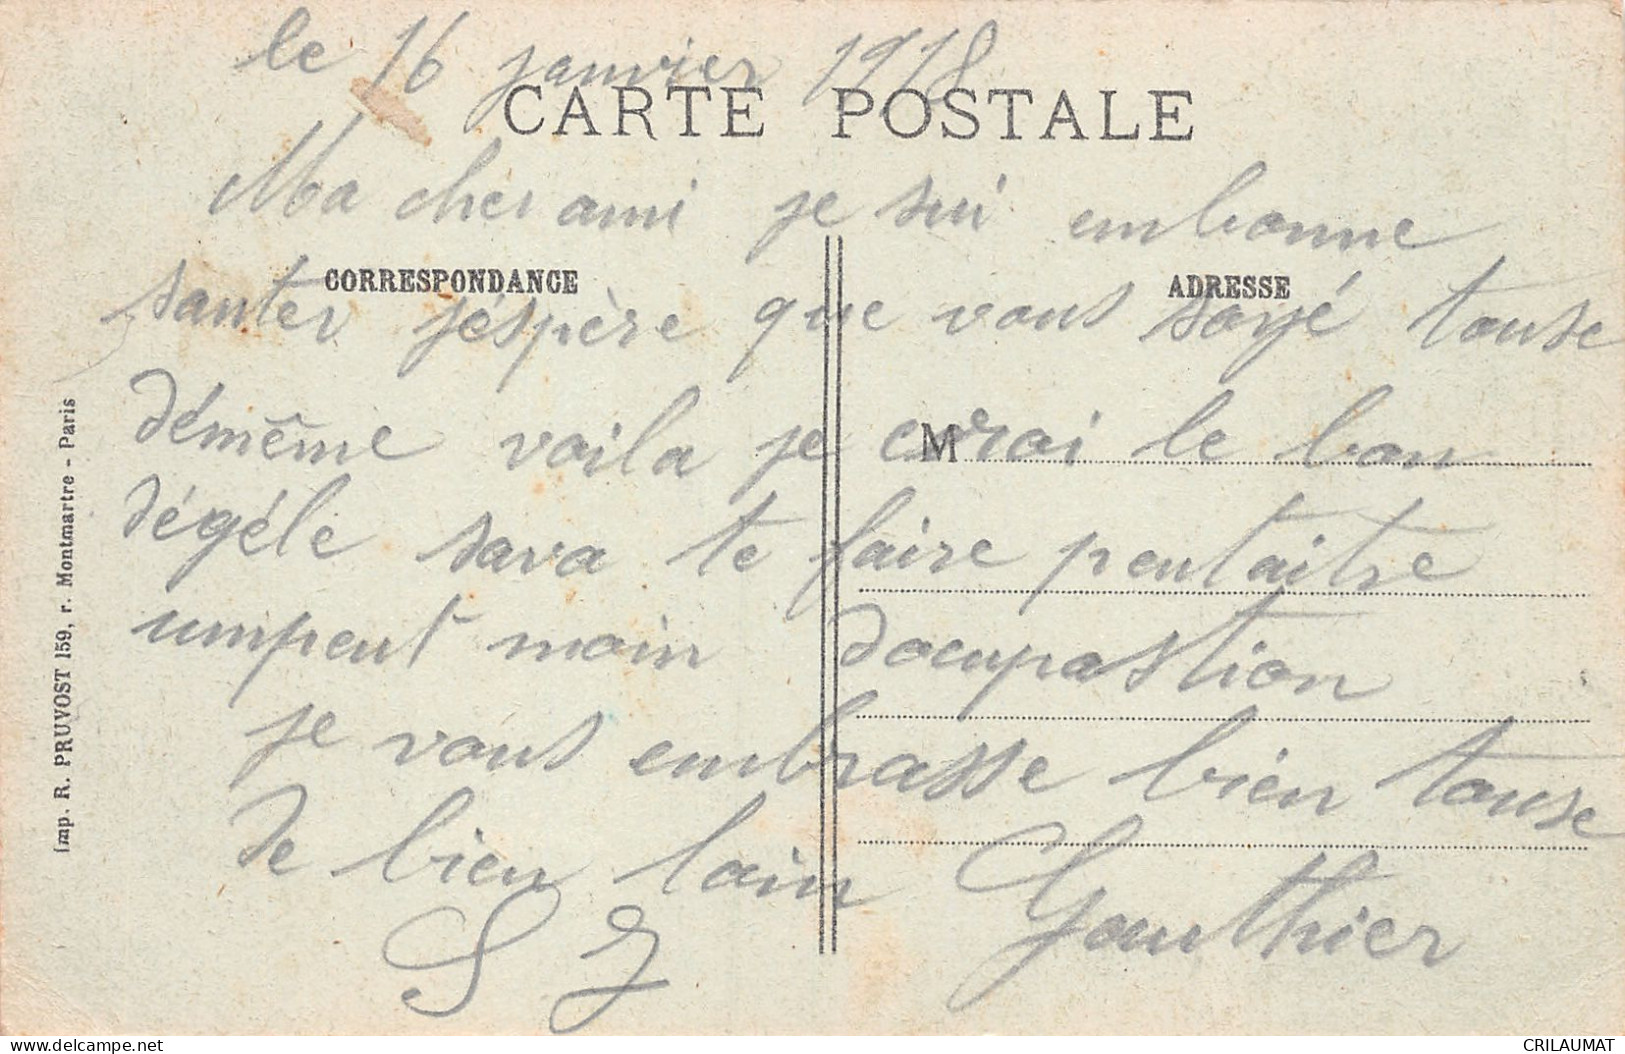 le 16 janvier 1918
CARTE POSTALE
Ma cher ami je sui enbonne
CORRESPONDANCE
ADRESSE
santer j'éspère que vous soyé touse
démême voila je croi le bon
M
dégéle sava te faire peutaitre
umpeut moin docupastion
je vous embrasse bien touse
de bien loin Gauthier
Imp. R. PRUVOST 159, r. Montmartre - Paris
delcampe.net
CRILAUMAT